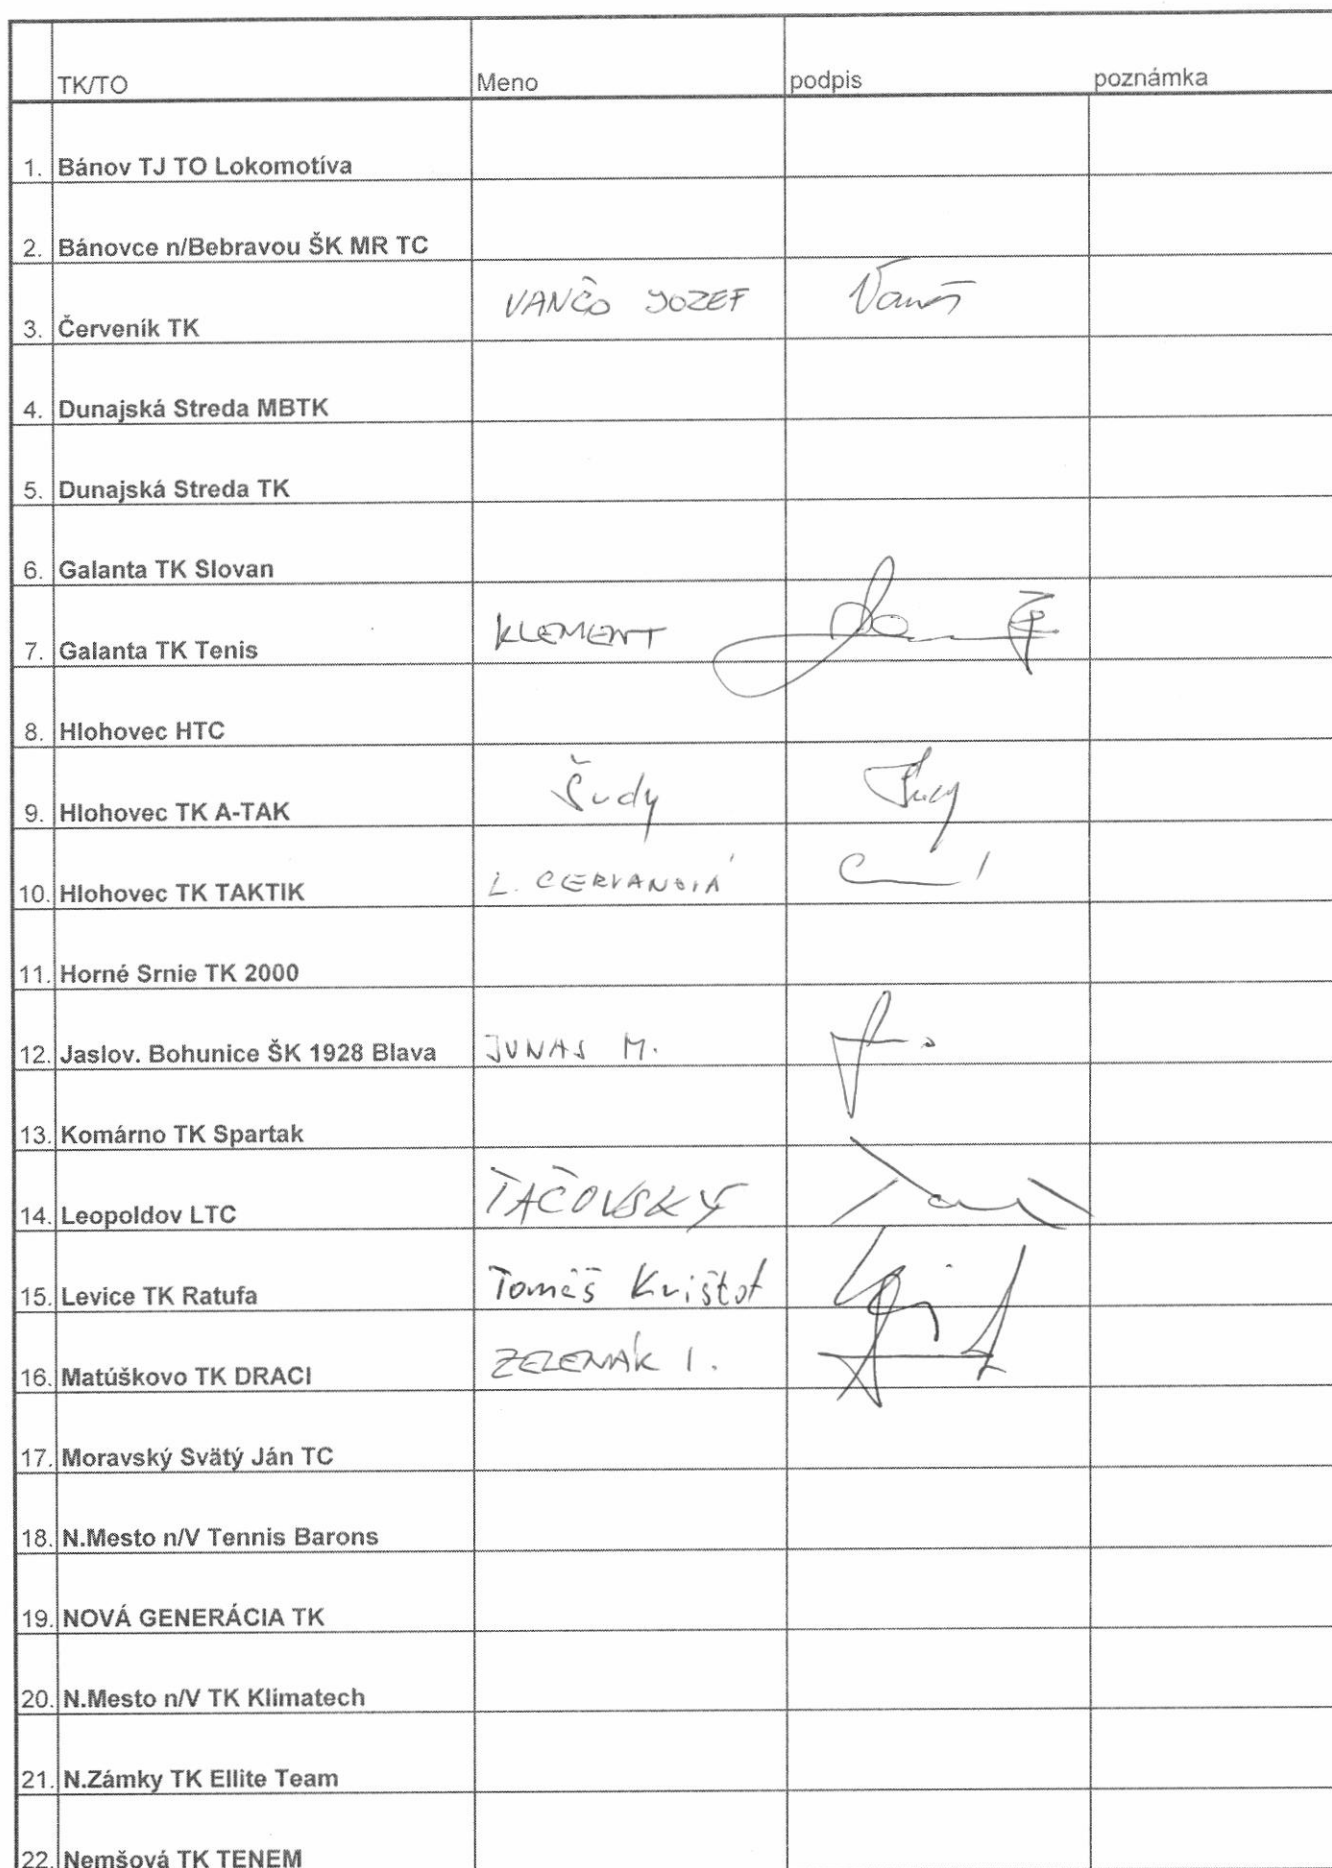 TK/TO Meno podpis poznámka
1. Bánov TJ TO Lokomotíva
2. Bánovce n/Bebravou ŠK MR TC
3. Červeník TK VANČO JOZEF
4. Dunajská Streda MBTK
5. Dunajská Streda TK
6. Galanta TK Slovan
7. Galanta TK Tenis KLEMENT
8. Hlohovec HTC
9. Hlohovec TK A-TAK Šudy
10. Hlohovec TK TAKTIK L. CERVANOVÁ
11. Horné Srnie TK 2000
12. Jaslov. Bohunice ŠK 1928 Blava JUNAS M.
13. Komárno TK Spartak
14. Leopoldov LTC ŤAČOVSKÝ
15. Levice TK Ratufa Tomáš Krištof
16. Matúškovo TK DRACI ZELENÁK I.
17. Moravský Svätý Ján TC
18. N.Mesto n/V Tennis Barons
19. NOVÁ GENERÁCIA TK
20. N.Mesto n/V TK Klimatech
21. N.Zámky TK Ellite Team
22. Nemšová TK TENEM